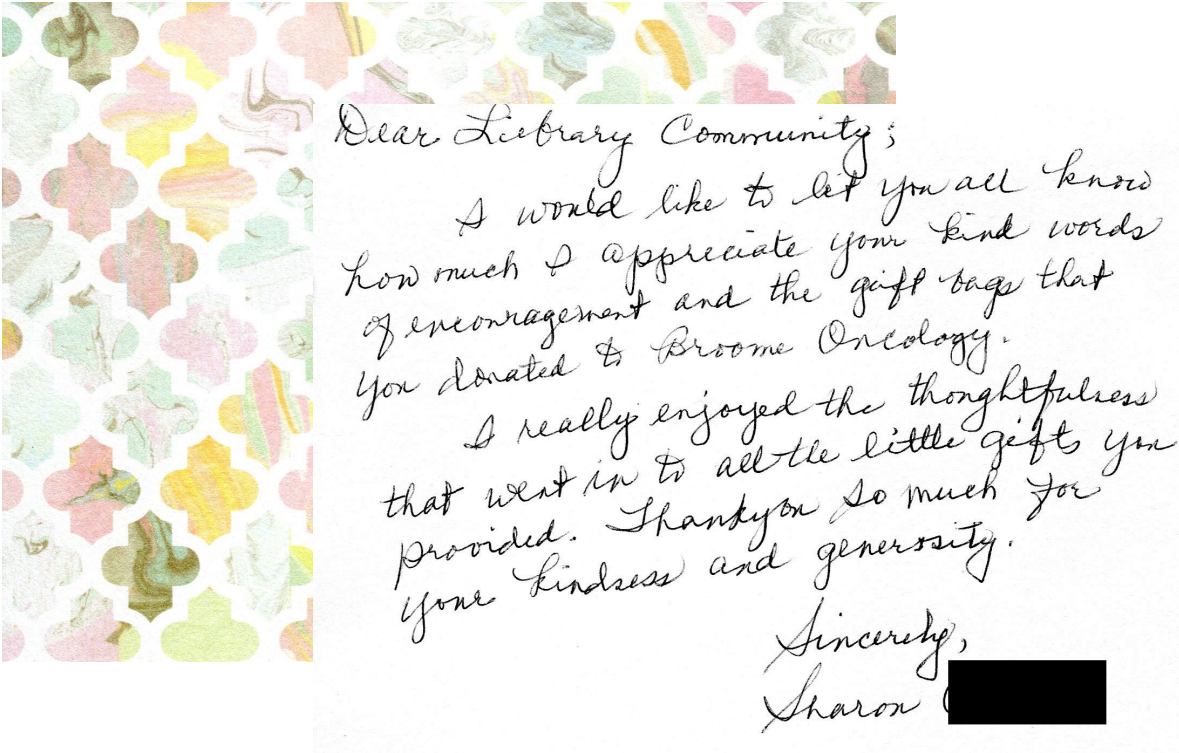 Dear Liebrary Community;
I would like to let you all know
how much I appreciate your kind words
of encouragement and the gift bags that
you donated to Broome Oncology.
I really enjoyed the thoughtfulness
that went in to all the little gifts you
provided. Thankyou so much for
your kindness and generosity.
Sincerely,
Sharon